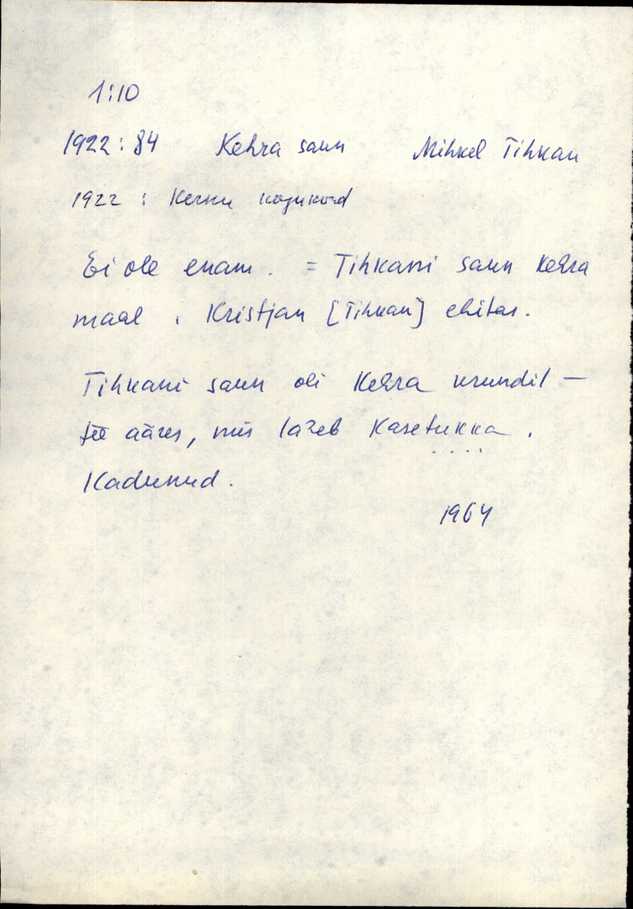 1:10
1922 : 84 Kehra saun Mihkel Tihkan
1922 : Kernu kogukond
Ei ole enam. = Tihkani saun Kehra
maal. Kristjan [Tihkan] ehitas.
Tihkani saun oli Kehra krundil —
tee ääres, mis läheb Kasetukka.
Kadunud.
1964